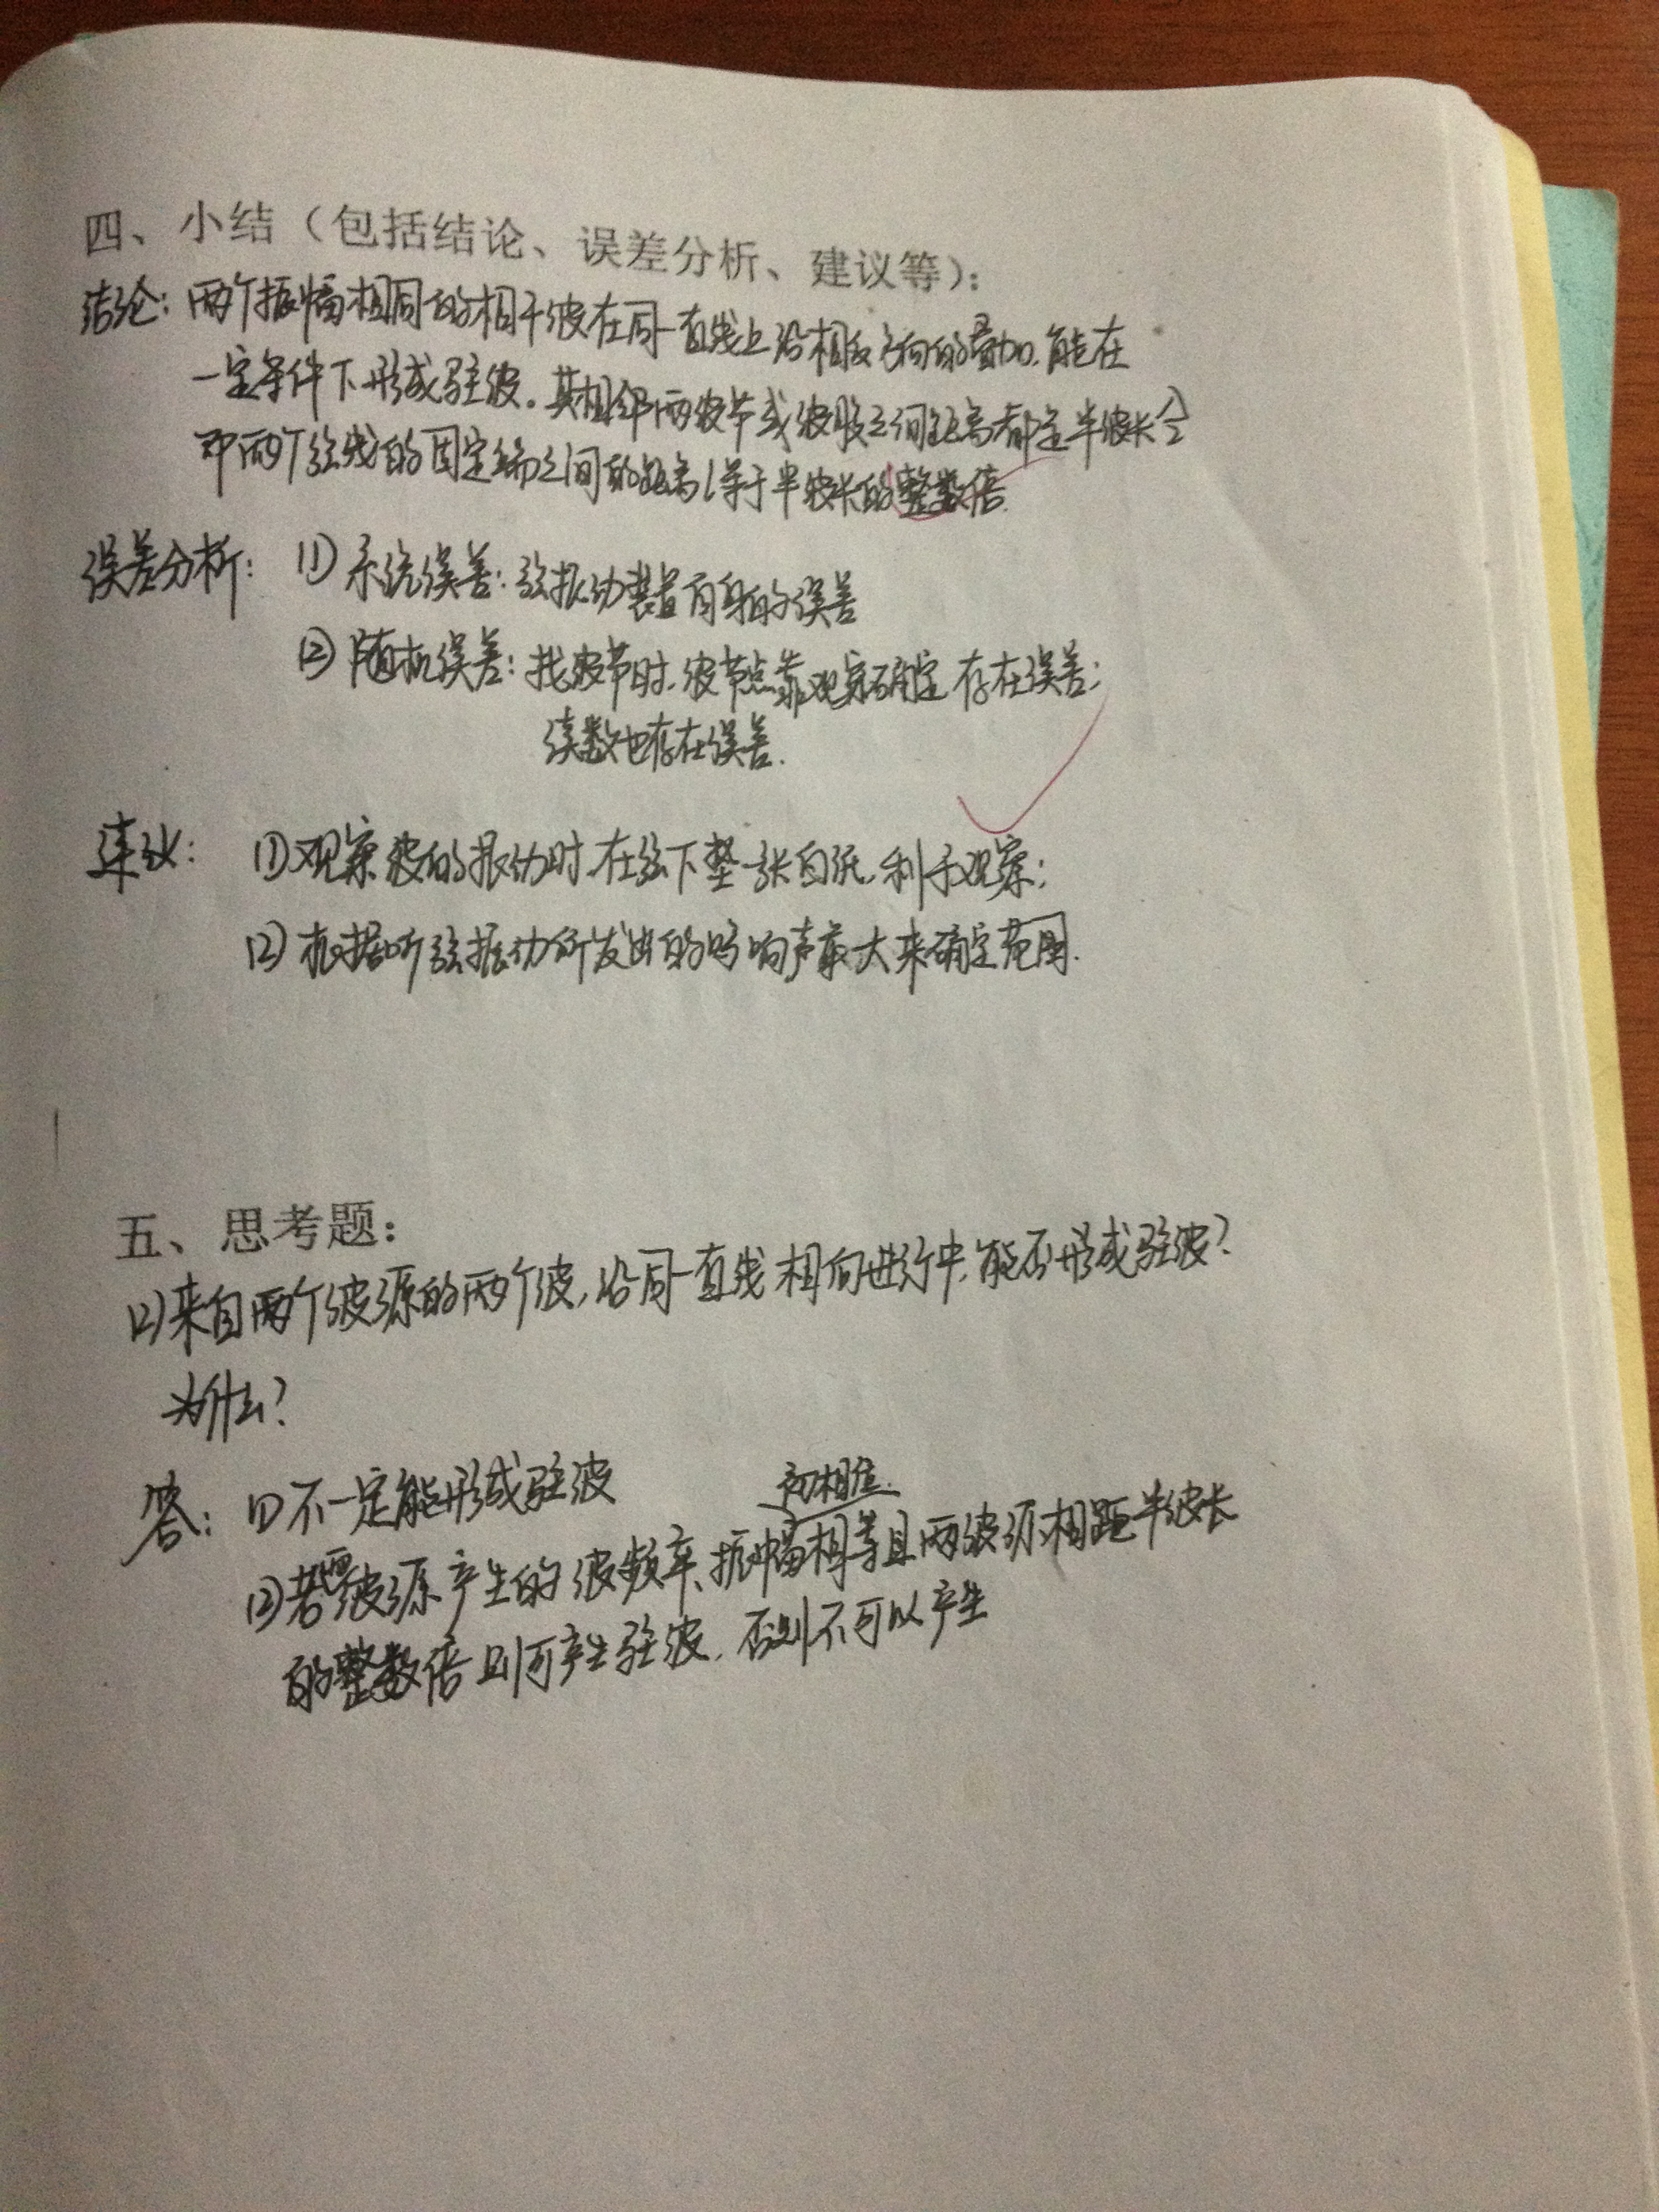 四、小结（包括结论、误差分析、建议等）：
结论：两个振幅相同的相干波在同一直线上沿相反方向的叠加，能在
一定条件下形成驻波。其相邻两波节或波腹之间距离都是半波长
即两个弦线的固定端之间的距离l等于半波长的整数倍.
误差分析：(1) 系统误差：弦振动装置自身的误差
(2) 随机误差：找波节时，波节点靠观察确定 存在误差；
读数也存在误差.
建议：(1) 观察波的振动时，在弦下垫一张白纸，利于观察；
(2) 根据听弦振动所发出的鸣响声最大来确定范围.
五、思考题：
(2) 来自两个波源的两个波，沿同一直线相向进行中，能否形成驻波？
为什么？
答：(1) 不一定能形成驻波
初相位
(2) 若两波源产生的波频率、振幅相等且两波源相距半波长
的整数倍则可产生驻波，否则不可以产生